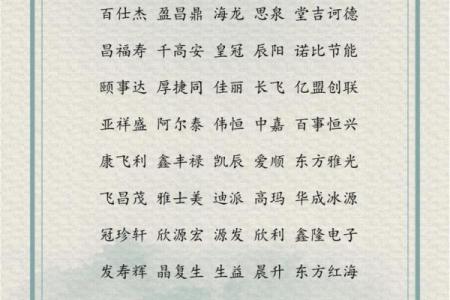 百仕杰 盈昌鼎 海龙 思泉 堂吉诃德
昌福寿 千高安 皇冠 辰阳 诺比节能
颐事达 厚捷同 佳丽 长飞 亿盟创联
亚祥盛 阿尔泰 伟恒 中嘉 百事恒兴
康飞利 鑫丰禄 凯辰 爱顺 东方雅光
飞昌茂 雅士美 迪派 高玛 华成冰源
冠珍轩 欣源宏 源发 欣利 鑫隆电子
发寿辉 晶复生 生益 晨升 东方红海